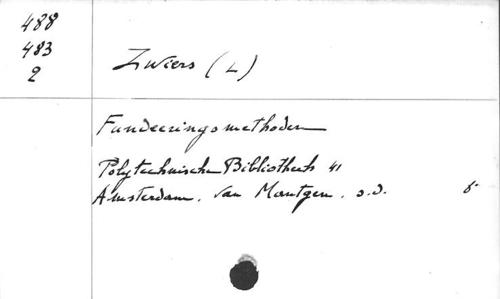 488
483
2
Zwiers (L)
Fundeeringsmethoden
Polytechnische Bibliotheek 41
Amsterdam. Van Mantgem. s.d.